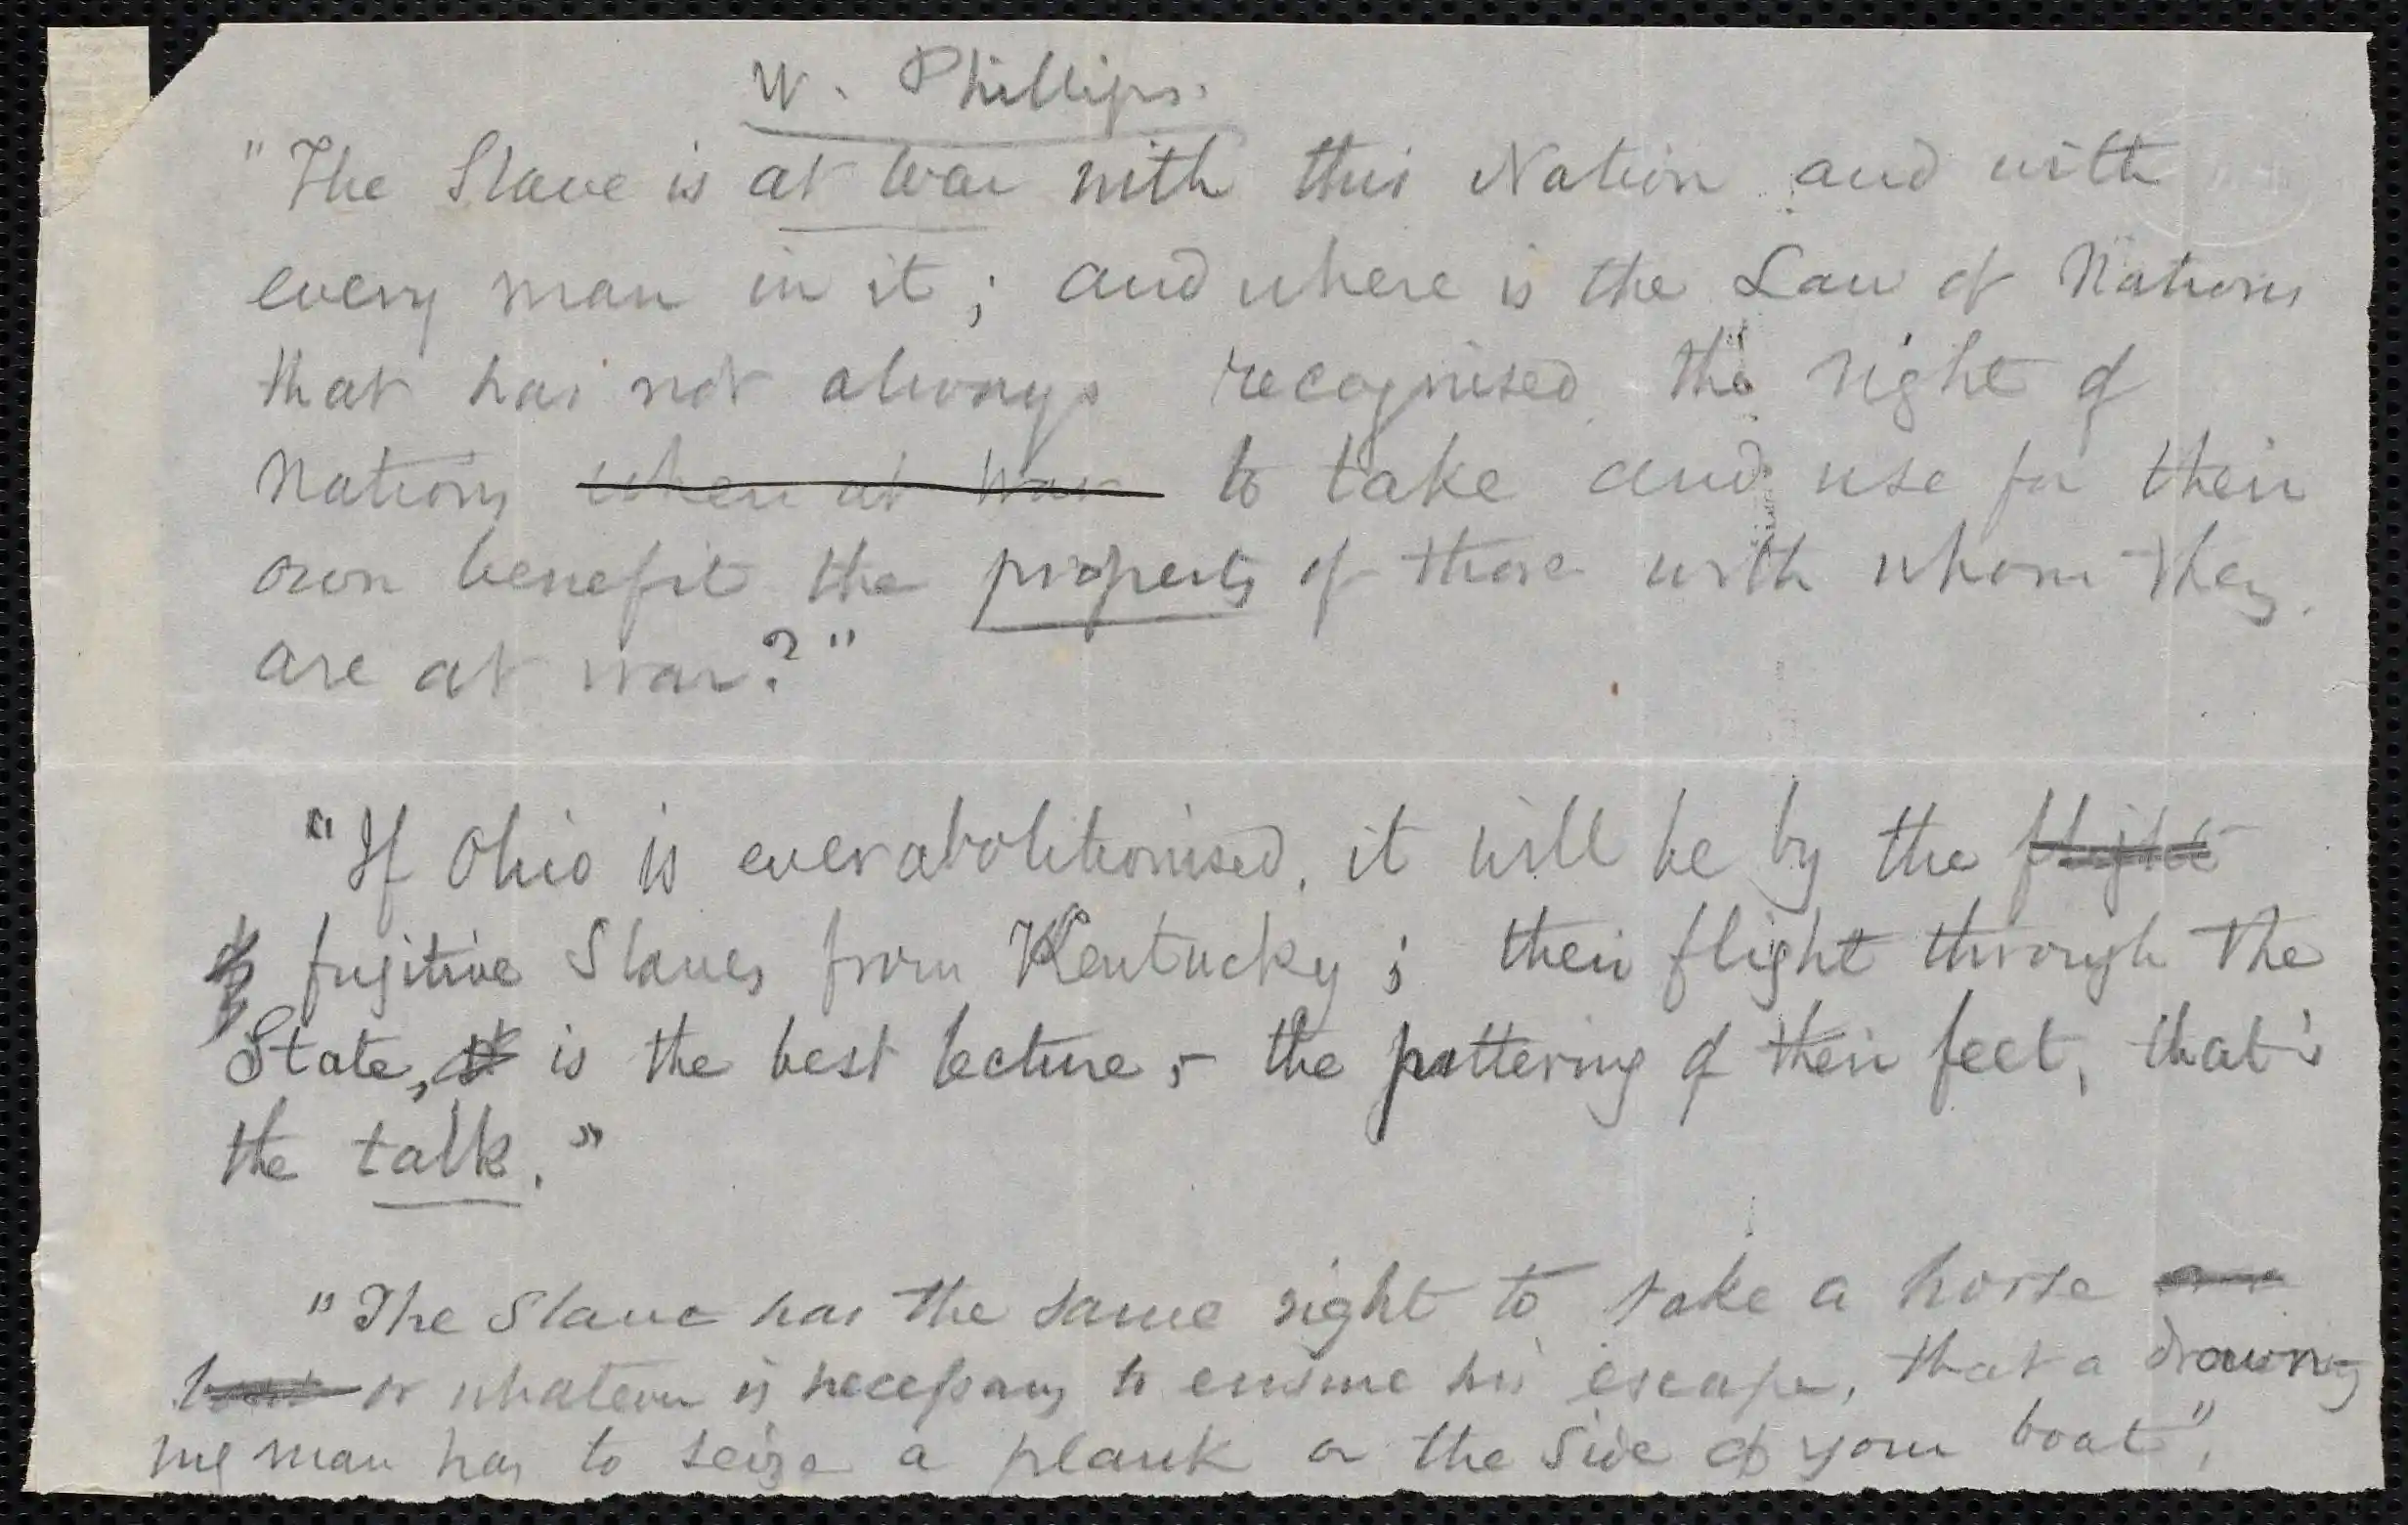 W. Phillips.
"The Slave is at war with this Nation and with
every man in it; and where is the Law of Nations
that has not always recognised the right of
Nations when at war to take and use for their
own benefit the property of those with whom they
are at war?"
"If Ohio is ever abolitionised, it will be by the flight
of fugitive Slaves from Kentucky; their flight through the
State, is the best lecture, - the pattering of their feet, that's
the talk."
"The Slave has the same right to take a horse
boat or whatever is necessary to ensure his escape, that a drown-
ing man has to seize a plank or the side of your boat",